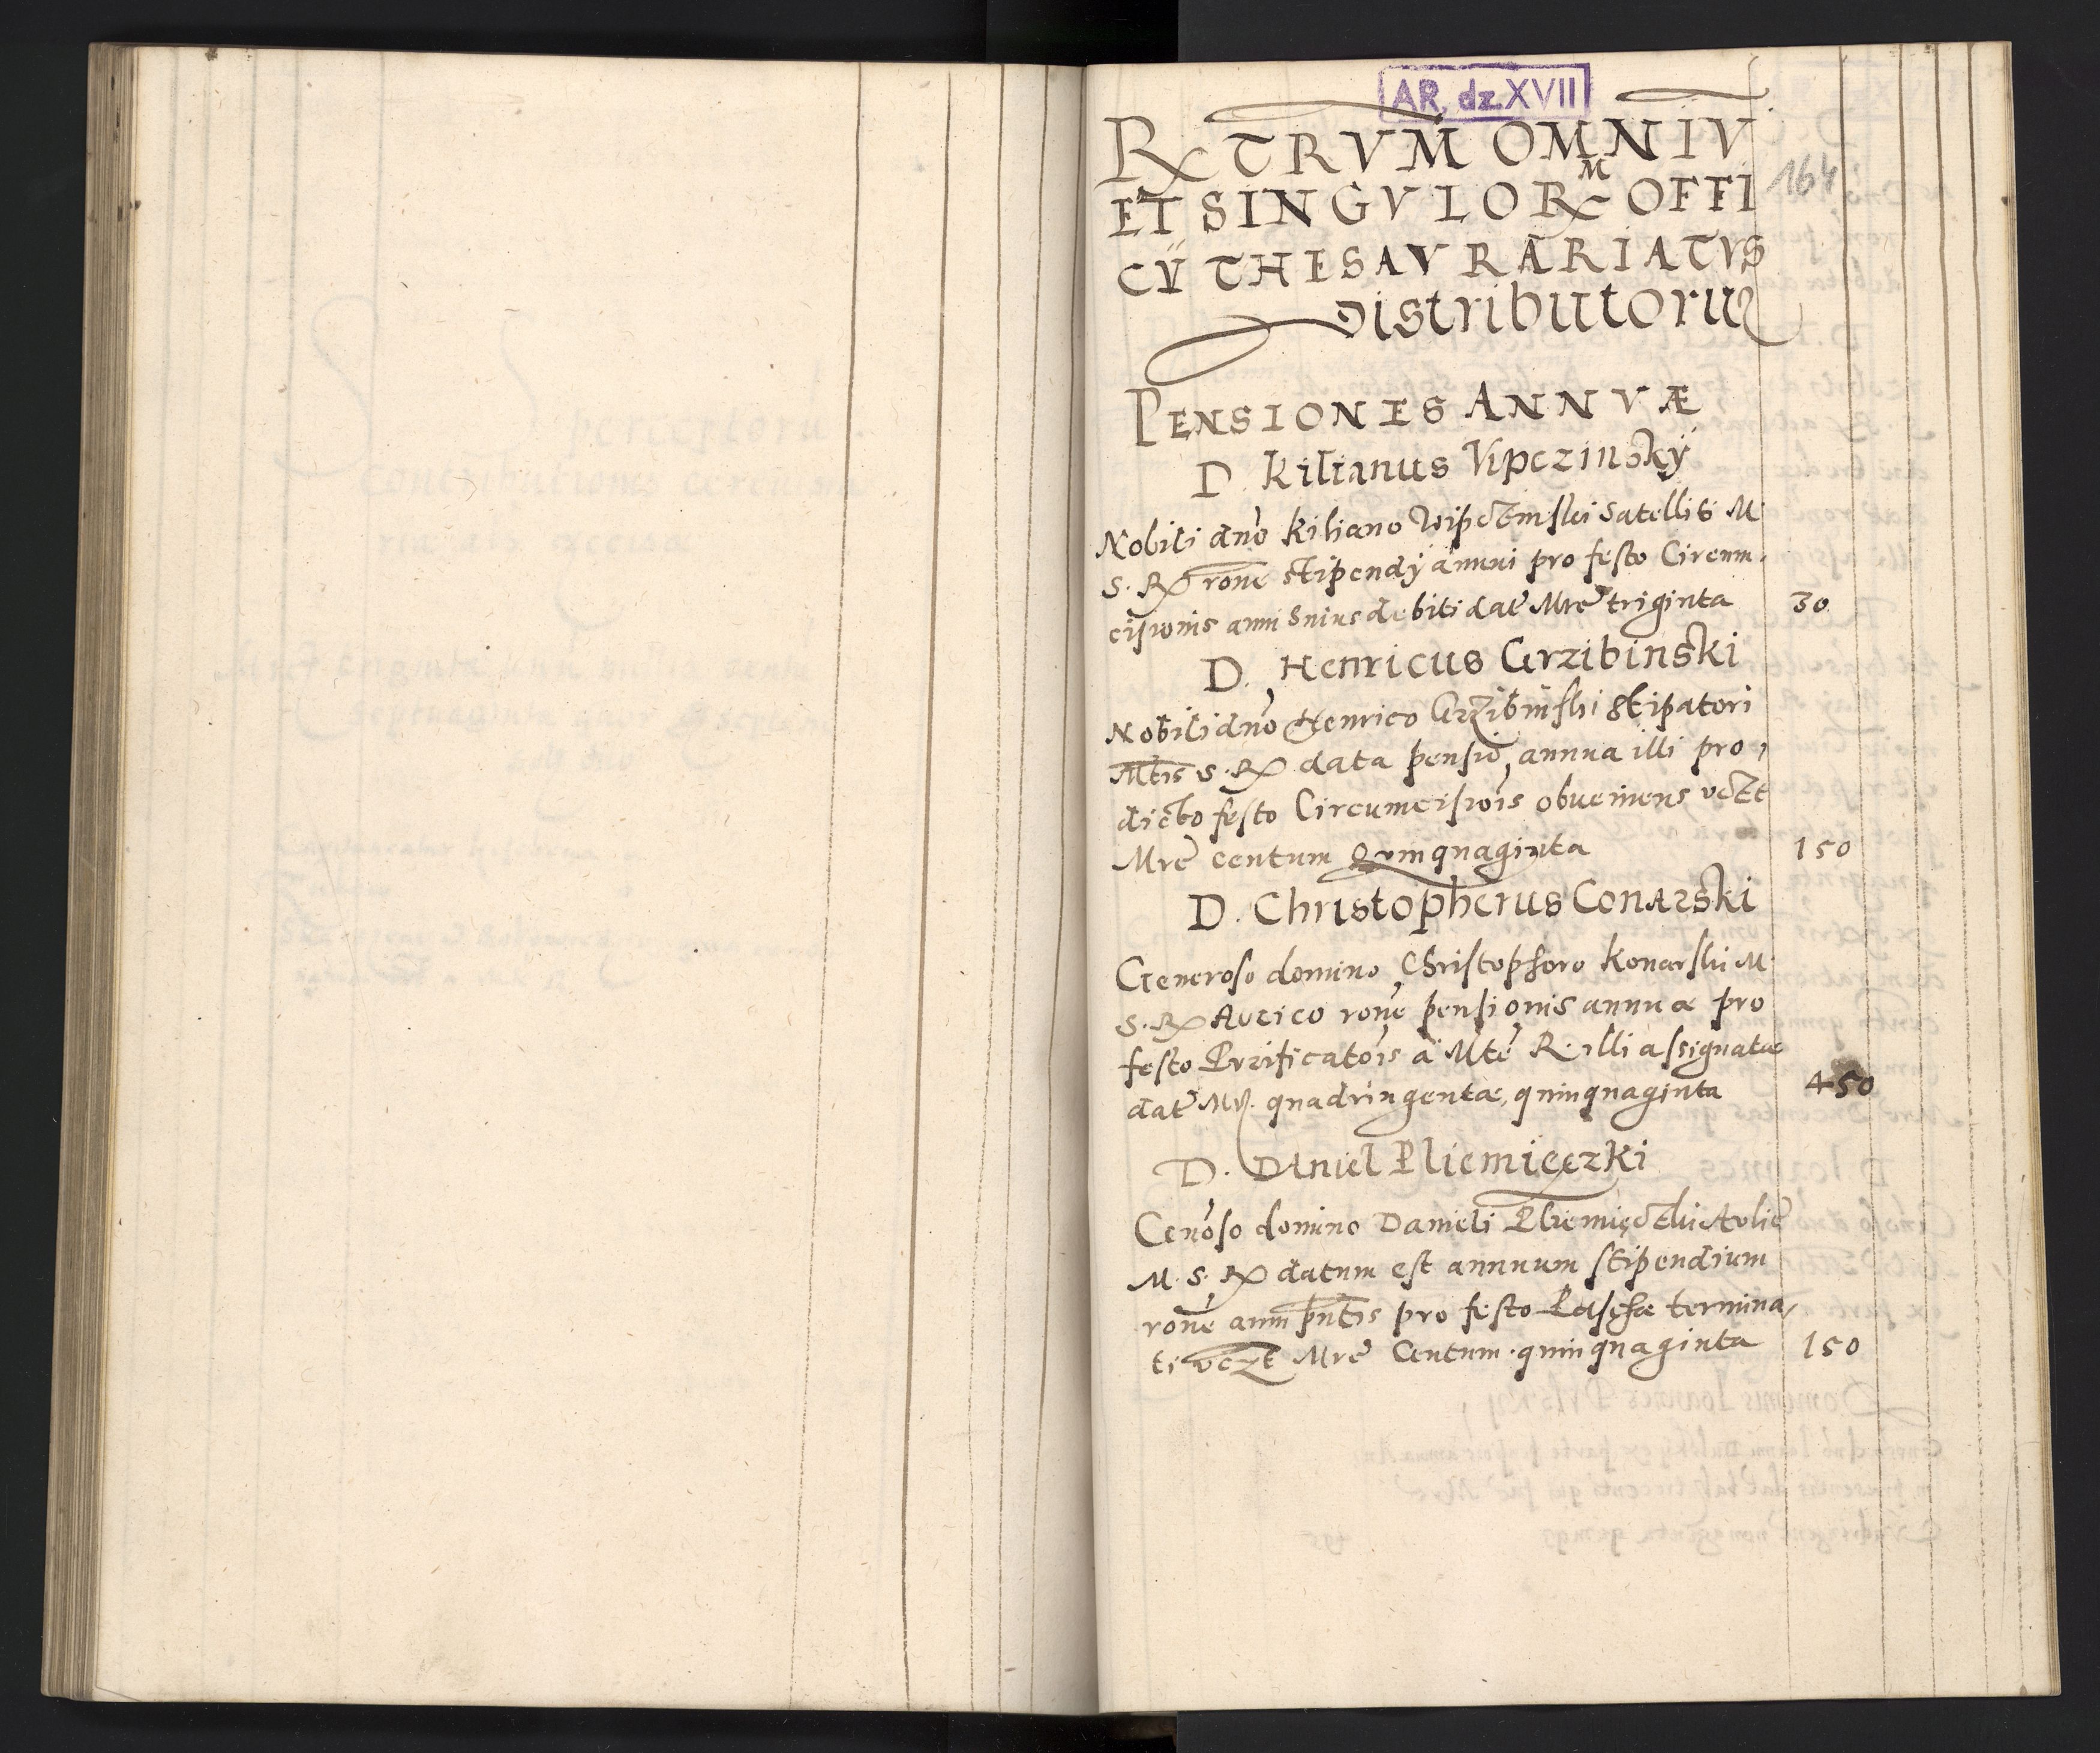 AR, dz. XVII
R℞TRVM OMNIV
164
ET SINGVLOR℞ M OFFI
CŸ THESAVRARIATVS
Distributoru
PENSIONES ANNVÆ
D. Kilianus Vipczinsky
Nobili dno Kiliano Wipczinski Satelliti M
S. R. rone stipendÿ annui pro festo Circum,
cisionis anni huius debiti dat Mre triginta 30
D. Henricus Grzibinski
Nobili dno Henrico Grzibinski stipatori
Mtis S. R. data pensio, annua illi pro,
dicto festo Circumcisiois obueniens vdzt
Mre centum Quinquaginta 150
D. Christopherus Conarski
Generoso domino Christophoro Konarski M
S. R. Aulico rone pensionis annuæ pro
festo Purificatois a Mte R. illi assignatæ
dat Mr. quadringentæ, quinquaginta 450
D. Daniel Pliemięczki
Genoso domino Danieli Pliemięczki Aulic
M. S. R. datum est annuum stipendium
rone anni pntis pro festo Paschæ termina,
ti vczt Mre Centum quinquaginta 150